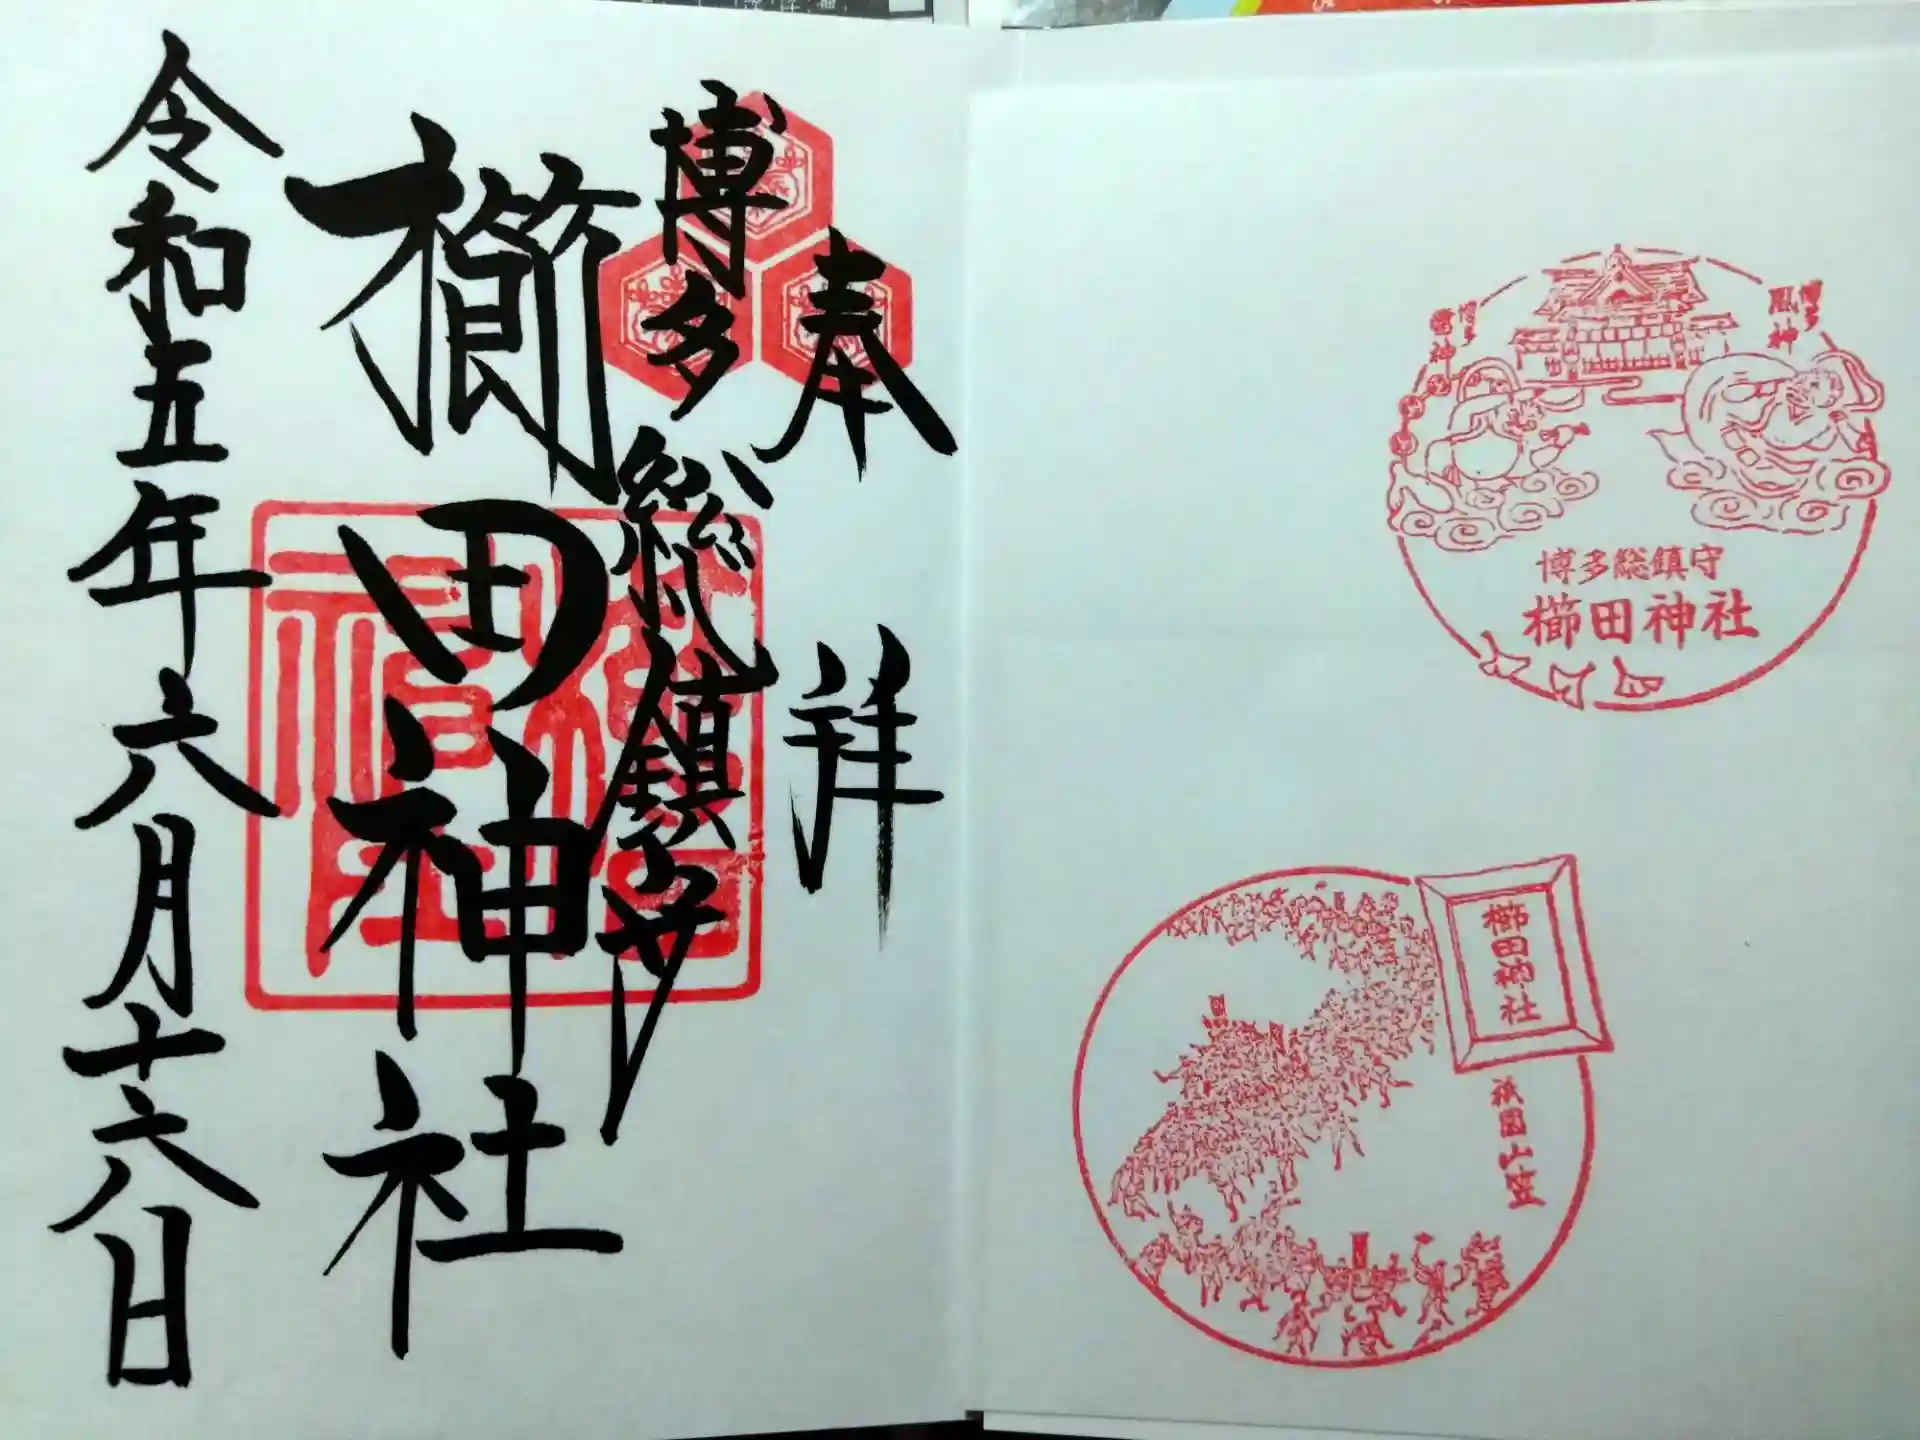 奉拝
博多総鎮守
櫛田神社
令和五年六月十六日
博多
風神
博多
雷神
博多総鎮守
櫛田神社
櫛田神社
祇園山笠